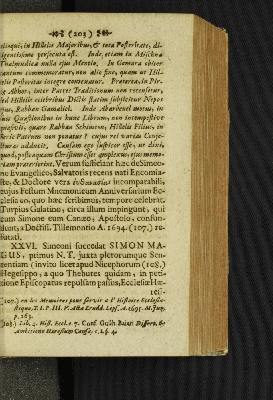 (203)
elinqui, in Hillelis Majoribus, & tota Posteritate, di-
ligentissime persecuta est. Inde, etiam in Mischna
Thalmudica nulla ejus Mentio. In Gemara obser-
vantum commemoratur, non alio fine, quam ut Hil-
lelis Posteritas integra contexatur. Præterea, in Pir-
ke Abhot, inter Patres Traditionum non recensetur,
sed Hillelis celebribus Dictis statim subjicitur Nepos
ejus, Rabban Gamaliel. Inde Abarbenel motus, in
suis Quæstionibus in hunc Librum, non intempestive
quæsivit, quare Rabban Schimeon, Hillelis Filius, in-
serie Patrum non ponatur? cujus rei varias Conje-
cturas adducit. Causam ego suspicor esse, ut dixi,
quod, postquam Christum esset amplexus, ejus memo-
riam præterirent. Verum sufficiant hæc de Simeo-
ne Evangelico, Salvatoris recens nati Encomia-
ste, & Doctore vere incomparabili,
cujus Festum Mnemonicum Anniversarium Ec-
clesia eo, quo hæc scribimus, tempore celebrat.
Turpius Galatino, circa illum impingunt, qui
eum Simone eum Cananæo, Apostolo, confun-
dunt, a Doctiss. Tillemontio A. 1694. (107.) re-
futati.
XXVI. Simeoni succedat SIMON MA-
GUS, primus N. T. juxta plerorumque Sen-
tentiam (invito licet apud Nicephorum (108.)
Hegesippo, a quo Thebutes quidam, in peti-
tione Episcopatus repulsam passus, Ecclesiæ Hæ-
resi-
(107.) en les Memoires pour servir a l' Histoire Ecclesia-
stique, T. I. P. III. V. Acta Erudd. Lips. A. 1695. M. Jun.
p. 263.
(108.) Lib. 4. Hist. Eccl. c. 7. Conf. Guilh. Baian Dissert. de
Ambitione Hæresum Causa, c. 1. §. 4.